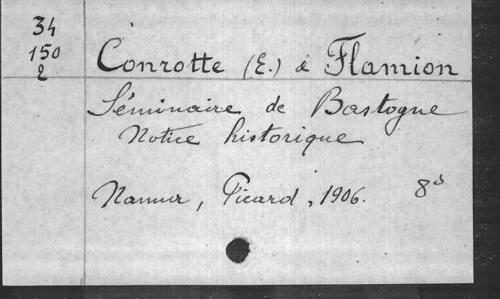 34
150
2
Conrotte (E.) & Flamion
Séminaire de Bastogne
Notice historique
Namur, Picard, 1906. 8°